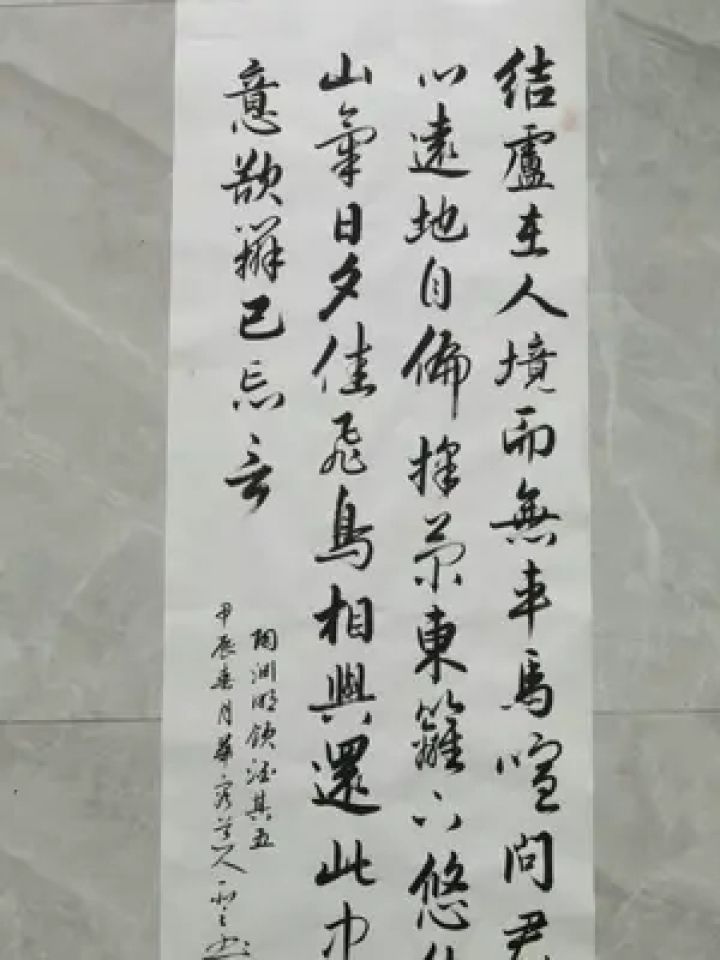 结廬在人境而無車馬喧问君
心遠地自偏採菊東籬下悠
山氣日夕佳飛鳥相與還此中
意欲辯已忘言
陶渊明飲酒其五
甲辰春月華容